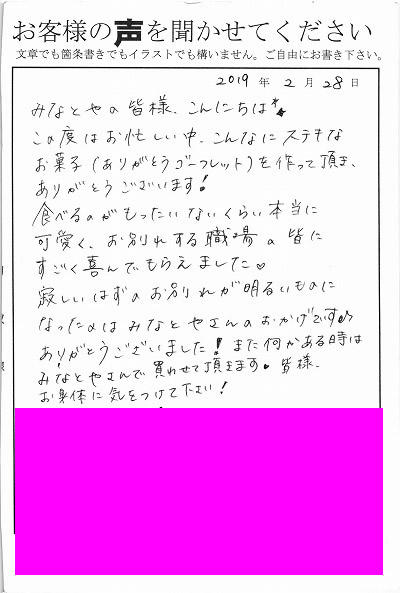 お客様の声を聞かせてください
文章でも箇条書きでもイラストでも構いません。ご自由にお書き下さい。
2019年2月28日
みなとやの皆様、こんにちは
この度はお忙しい中、こんなにステキな
お菓子(ありがとうゴーフレット)を作って頂き、
ありがとうございます!
食べるのがもったいないくらい本当に
可愛く、お別れする職場の皆に
すごく喜んでもらえました♡
寂しいはずのお別れが明るいものに
なったのはみなとやさんのおかげです♪
ありがとうございました!また何かある時は
みなとやさんで買わせて頂きます。皆様、
お身体に気をつけて下さい!